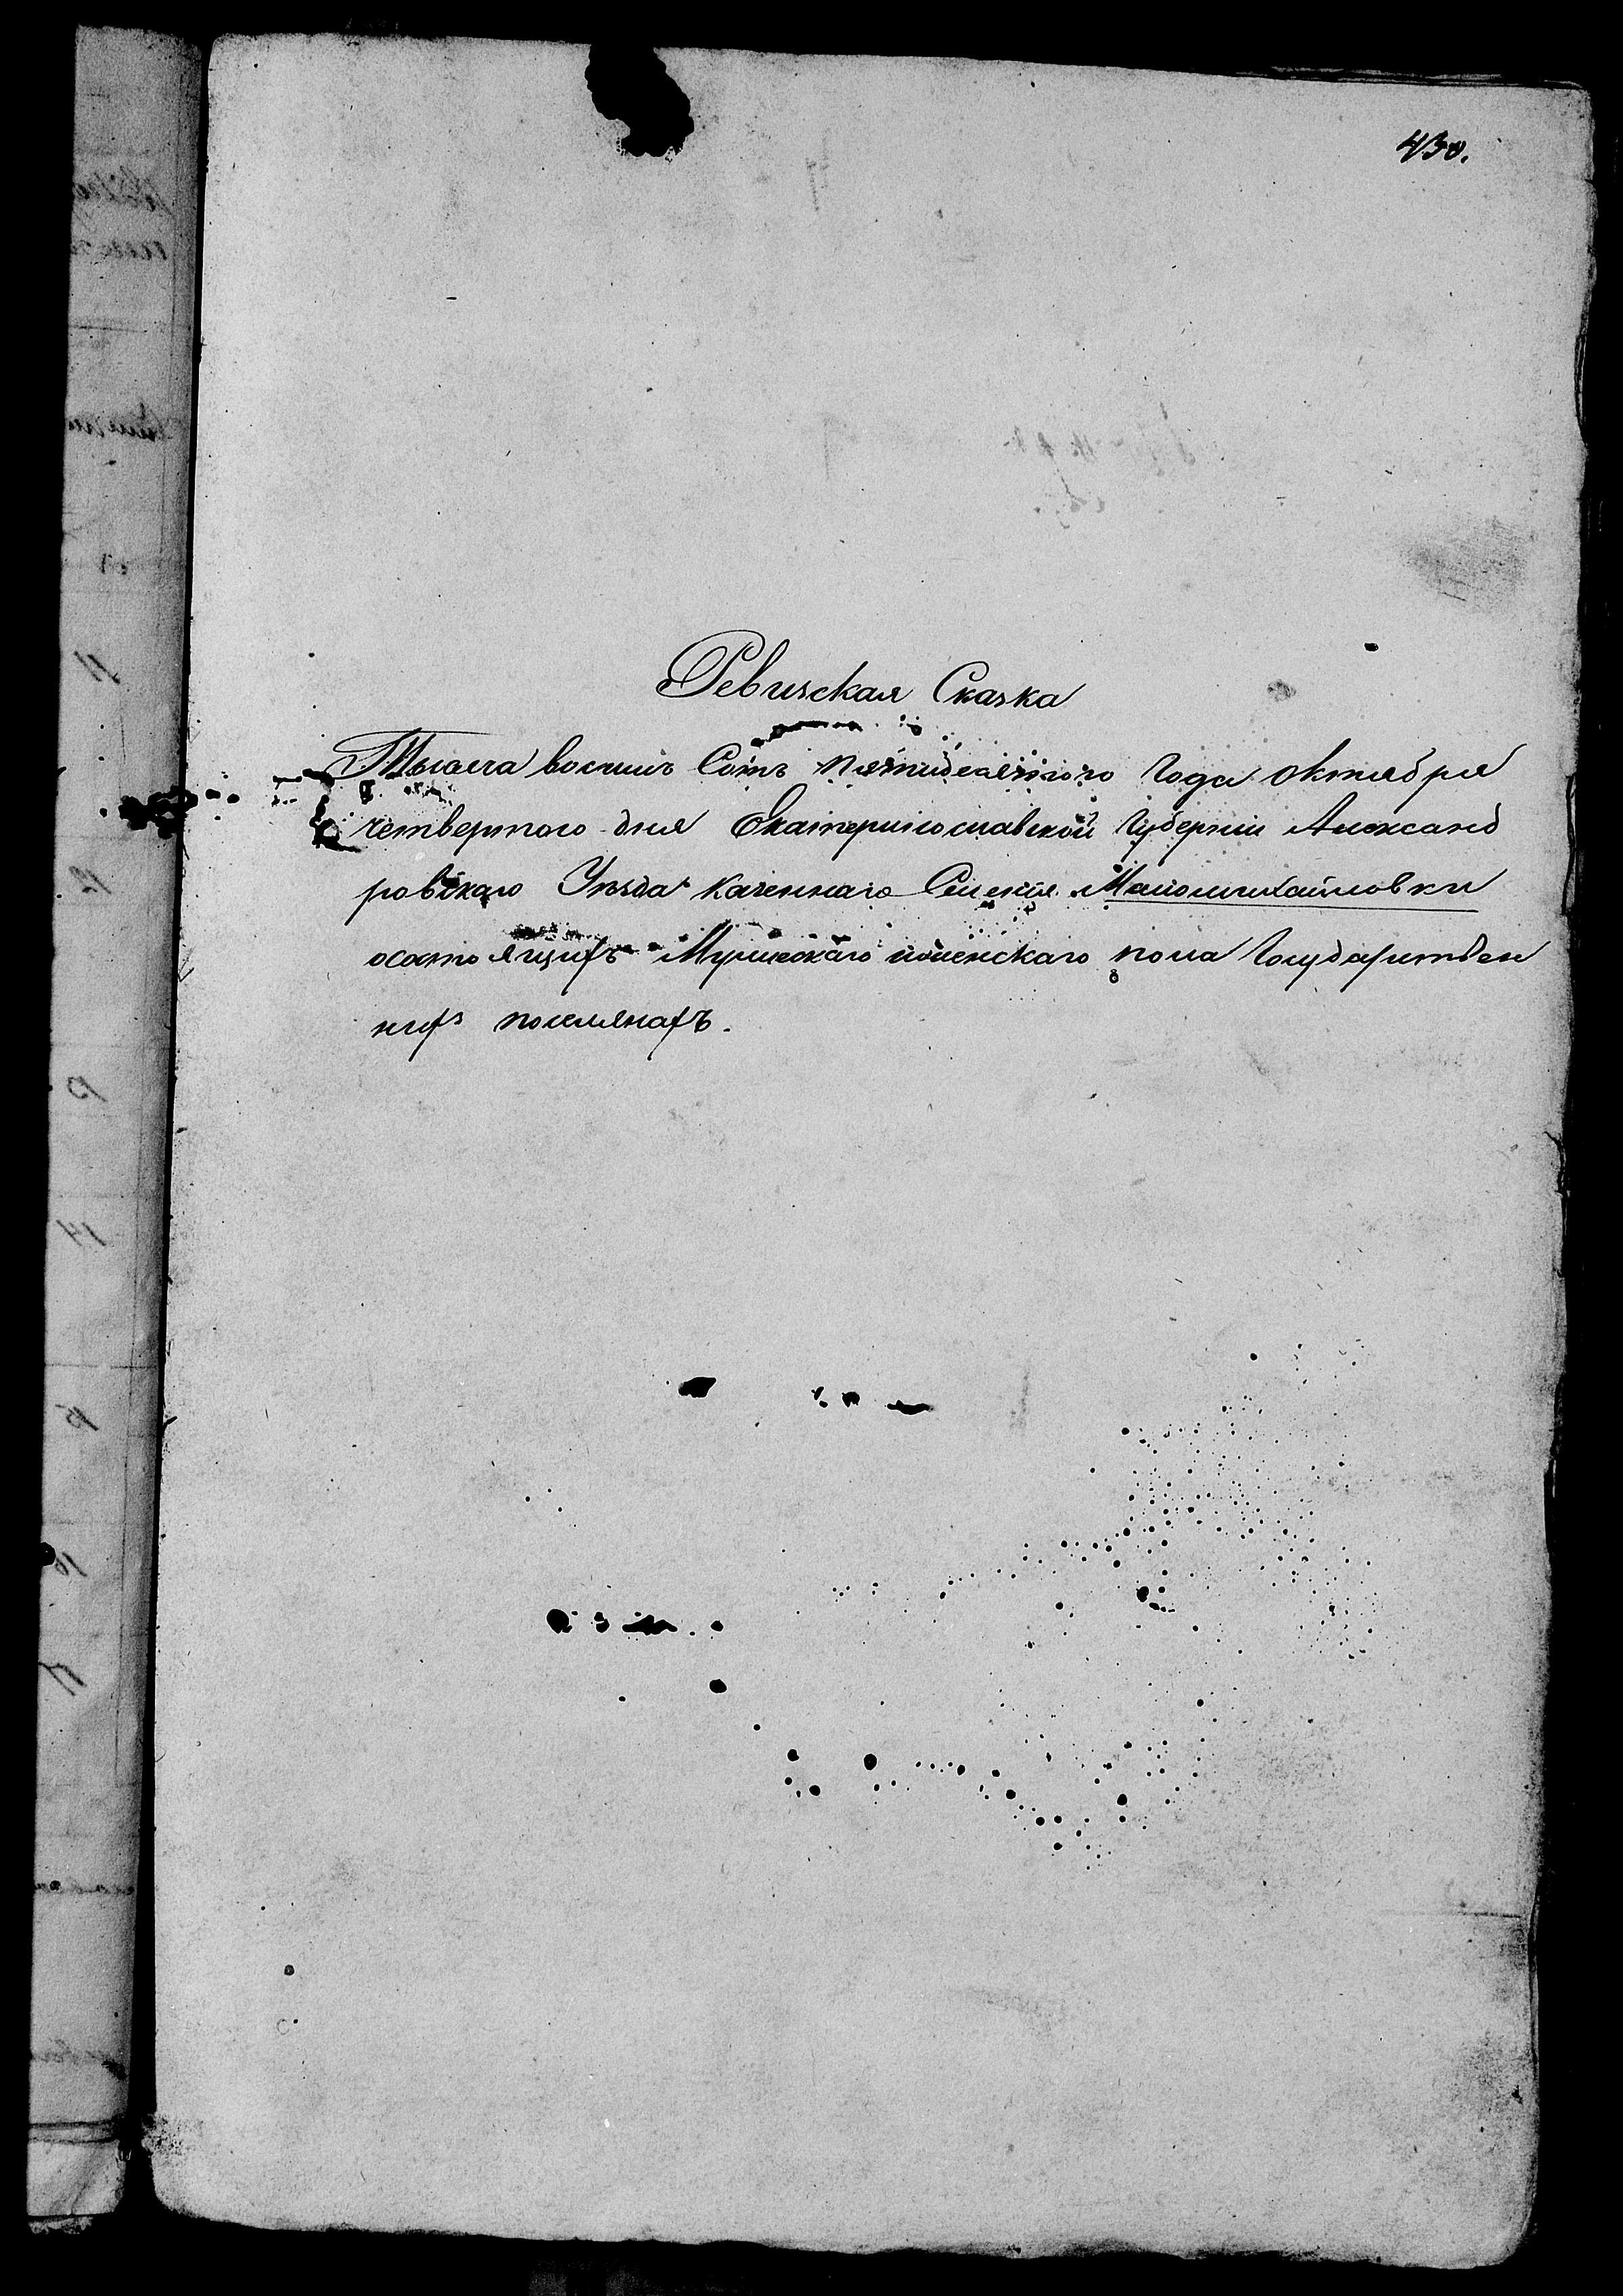 430.
Ревизская Сказка
Тысяча восемь Сотъ пятидесятого года октября
четвертого дня Екатеринославской губернии Александ
ровскаго Уезда казеннаго Селения Маломихайловки
осостоящихъ Мужескаго иженскаго пола государствен
ныхъ поселянахъ.
11
12
13
14
15
16
17